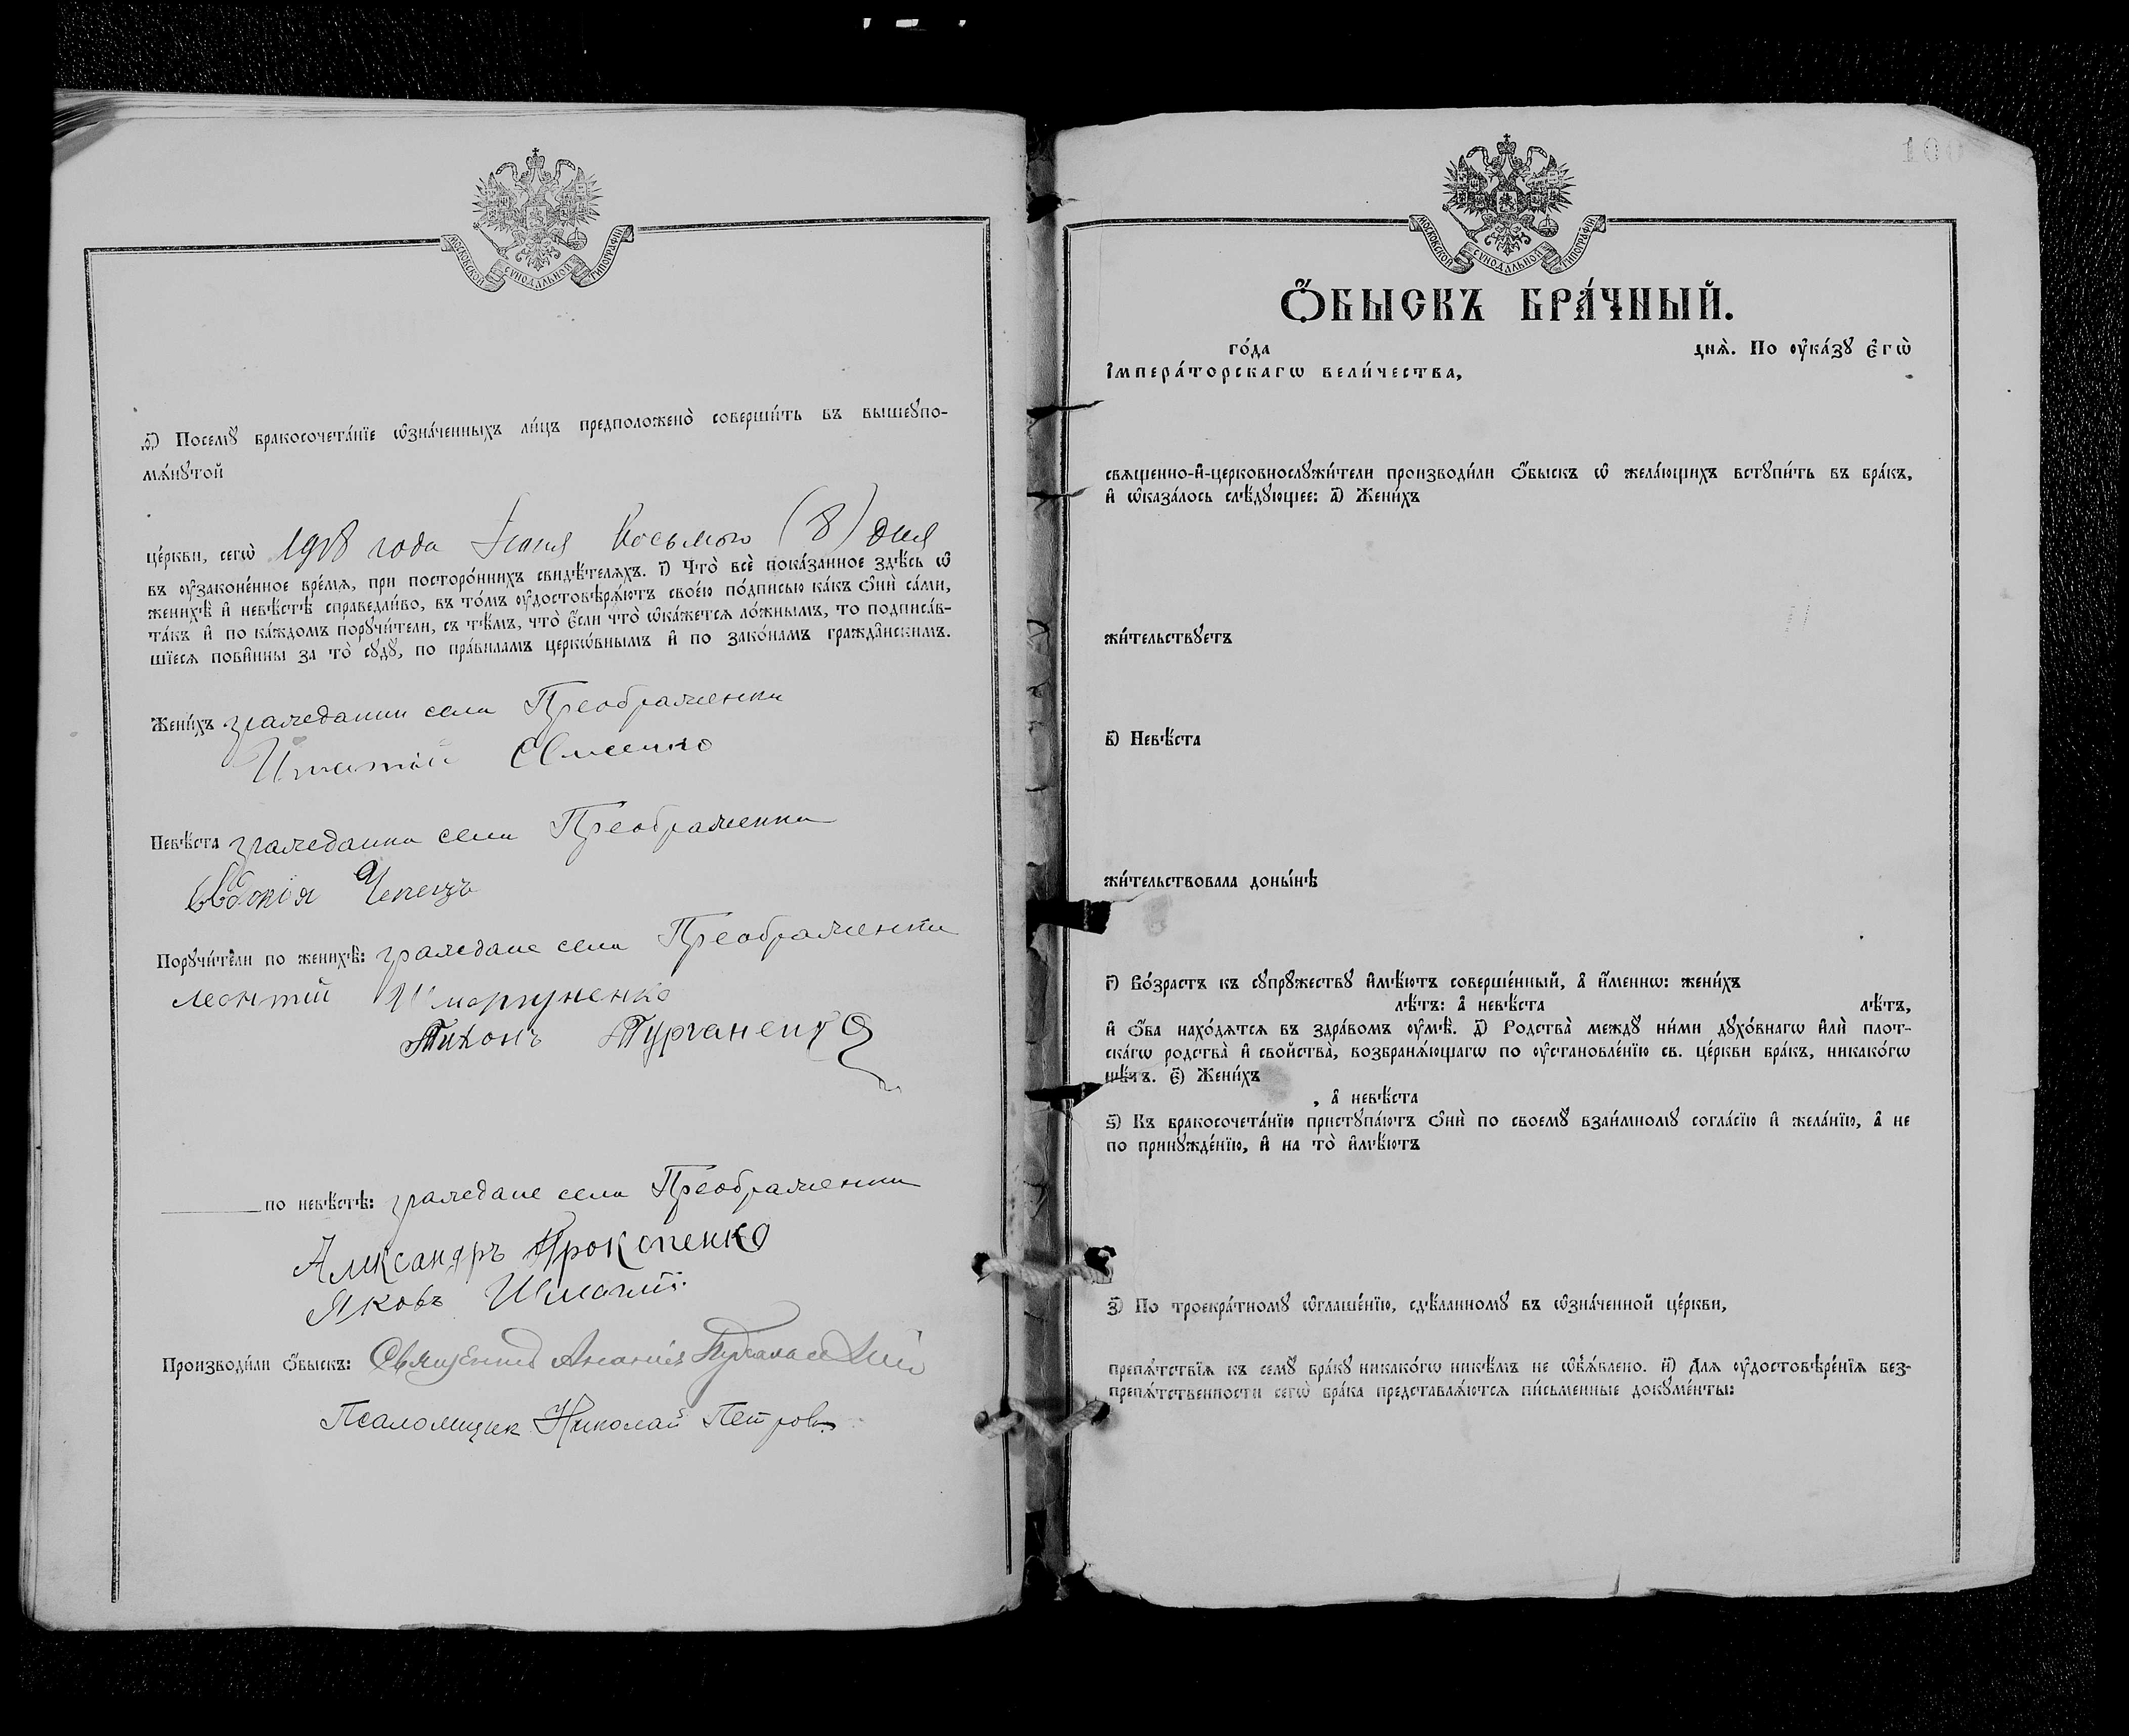 МОСКОВСКОЙ СѴНОДАЛЬНОЙ ТИПОГРАФІИ
д҃) Посемꙋ̀ бракосочета́нїе ѡ҆зна́ченныхъ ли́цъ предположено̀ соверши́ть въ вышеꙋпо-
мѧ́нꙋтой
це́ркви, сегѡ̀ 1918 года Восьмого (8) дня
въ ᲂу҆законе́нное вре́мѧ, при посторо́ннихъ свидѣ́телѧхъ. і҃) Что̀ всѐ пока́занное здѣ́сь ѡ҆
женихѣ̀ и҆ невѣ́стѣ справедли́во, въ то́мъ ᲂу҆достовѣрѧ́ютъ свое́ю по́дписью ка́къ ѻ҆нѝ са́ми,
та́къ и҆ по ка́ждомъ порꙋчи́тели, съ тѣ́мъ, что̀ є҆́сли что̀ ѡ҆ка́жетсѧ ло́жнымъ, то подписа́в-
шїесѧ пови́нны за то̀ сꙋдꙋ̀, по пра́виламъ церко́внымъ и҆ по зако́намъ гражда́нскимъ.
Жени́хъ гражданин села Преображенки
Невѣ́ста гражданка села Преображенки
Евдокія Чепецъ
Порꙋчи́тели по женихѣ̀: граждане села Преображенки
Леонтій
Тихонъ Турчаненко
по невѣ́стѣ: граждане села Преображенки
Александръ Прокопенко
Яковъ
Производи́ли ѻ҆́быскъ: Священник Ананія
Псаломщик Николай Петров
100
МОСКОВСКОЙ СѴНОДАЛЬНОЙ ТИПОГРАФІИ
Ѻ҆́БЫСКЪ БРА́ЧНЫЙ.
го́да днѧ̀. По ᲂу҆ка́зꙋ Є҆гѡ̀
І҆мпера́торскагѡ вели́чества,
свѧщенно-и҆-церковнослꙋжи́тели производи́ли ѻ҆́быскъ ѡ҆ жела́ющихъ встꙋпи́ть въ бра́къ,
и҆ ѡ҆каза́лось слѣ́дꙋющее: а҃) Жени́хъ
жи́тельствꙋетъ
в҃) Невѣ́ста
жи́тельствовала доны́нѣ
г҃) Во́зрастъ къ сꙋпрꙋ́жествꙋ и҆мѣ́ютъ соверше́нный, а҆ и҆́меннѡ: жени́хъ
лѣ́тъ: а҆ невѣ́ста лѣ́тъ,
и҆ ѻ҆́ба нахо́дѧтсѧ въ здра́вомъ ᲂу҆мѣ̀. д҃) Родства̀ междꙋ̀ ни́ми дꙋхо́внагѡ и҆лѝ плот-
ска́гѡ родства̀ и҆ свойства̀, возбранѧ́ющагѡ по ᲂу҆становле́нїю св. це́ркви бра́къ, никако́гѡ
нѣ́тъ. є҃) Жени́хъ
, а҆ невѣ́ста
ѕ҃) Къ бракосочета́нїю пристꙋпа́ютъ ѻ҆нѝ по своемꙋ̀ взаи́мномꙋ согла́сїю и҆ жела́нїю, а҆ не
по принꙋжде́нїю, и҆ на то̀ и҆мѣ́ютъ
з҃) По троекра́тномꙋ ѡ҆глаше́нїю, сдѣ́ланномꙋ въ ѡ҆зна́ченной це́ркви,
препѧ́тствїѧ къ семꙋ̀ бра́кꙋ никако́гѡ никѣ́мъ не ѡ҆б̾ѧ́влено. и҃) Длѧ ᲂу҆достовѣре́нїѧ без-
препѧ́тственности сегѡ̀ бра́ка представлѧ́ютсѧ пи́сьменные докꙋме́нты: